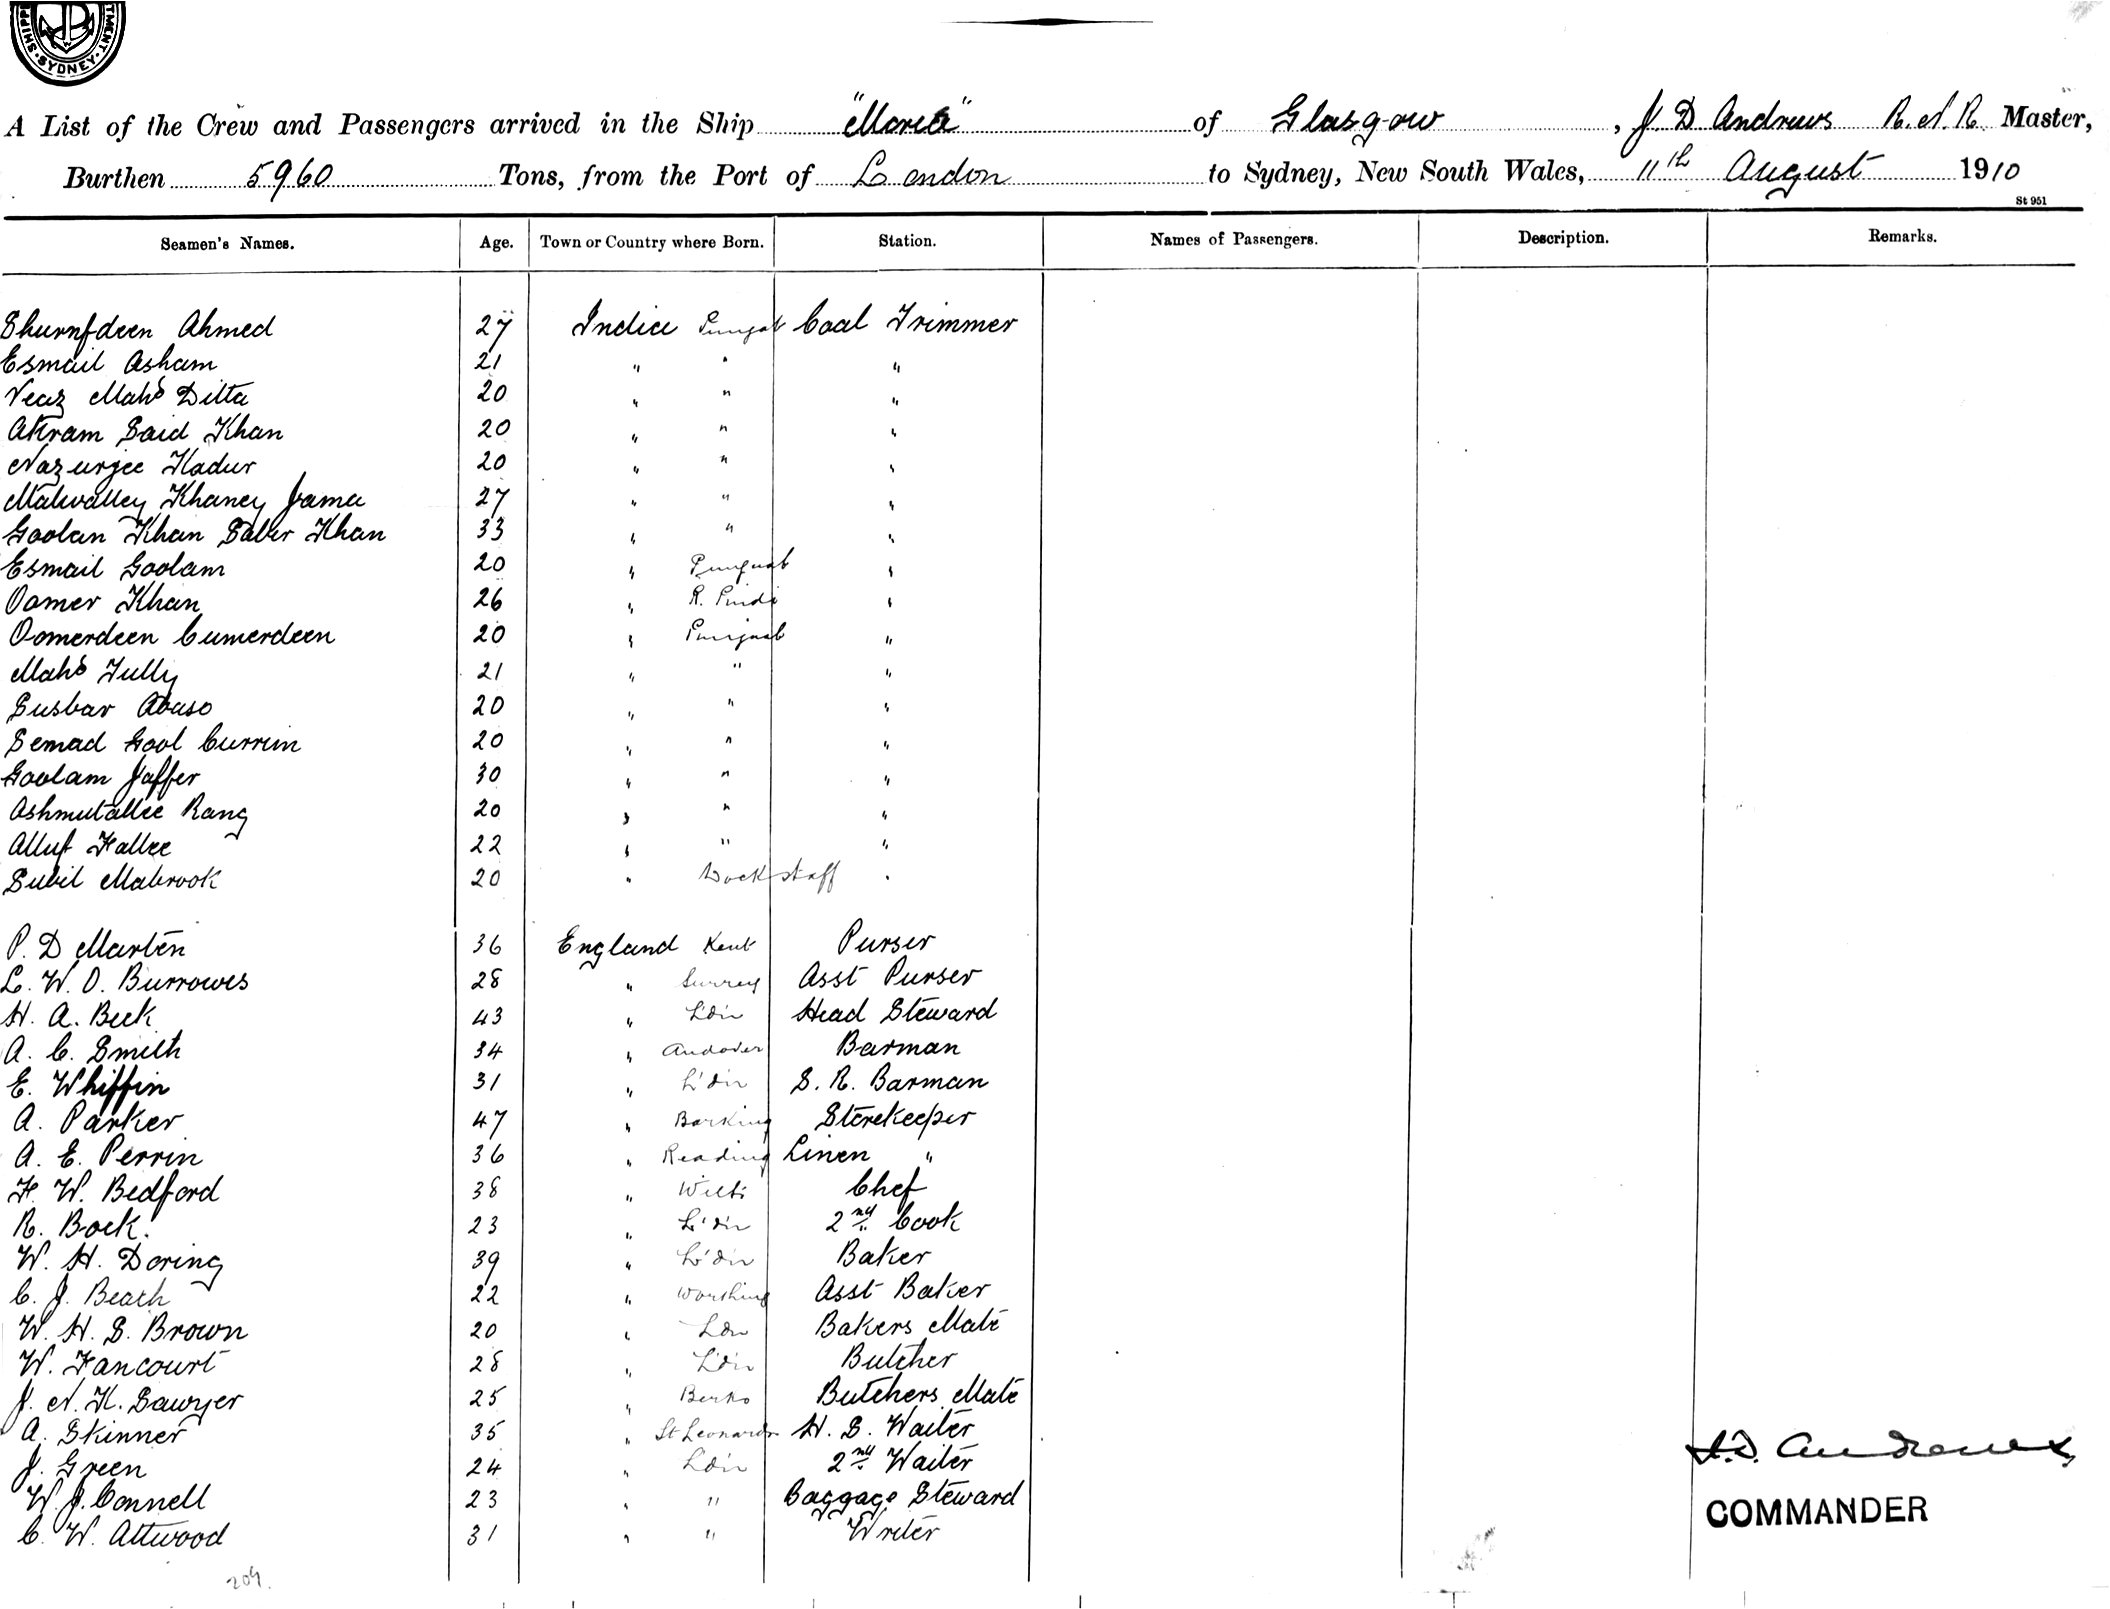 SHIPP TMENT. SYDNEY.
A List of the Crew and Passengers arrived in the Ship "Morea" of Glasgow, J D Andrews R.N.R. Master,
Burthen 5960 Tons, from the Port of London to Sydney, New South Wales, 11th August 1910
St 951
Seamen's Names. Age. Town or Country where Born. Station. Names of Passengers. Description. Remarks.
Ahmed 27 India Punjab Coal Trimmer
Esmail Asham 21 " " "
Mahd Ditta 20 " " "
Akram Said Khan 20 " " "
Nazurjee Kadur 20 " " "
Khaney Jama 27 " " "
Goolan Khan Sabir Khan 33 " " "
Esmail Goolam 20 " Punjaub "
Oomer Khan 26 " R. Pindi "
Oomerdeen Cumerdeen 20 " Punjaub "
Mahd Fully 21 " " "
Susbar Abaso 20 " " "
Semad Gool Currim 20 " " "
Goolam Jaffer 30 " " "
Ashmutallee Rang 20 " " "
Alluf Fallee 22 " " "
Subil Mabrook 20 " Dock staff "
P. D Marten 36 England Kent Purser
L. W. O. Burrowes 28 " Surrey Asst Purser
H. A. Beck 43 " L'dn Head Steward
A. C. Smith 34 " Andover Barman
E. Whiffin 31 " L'dn S. R. Barman
A. Parker 47 " Barking Storekeeper
A. E. Perrin 36 " Reading Linen "
F. W. Bedford 38 " Wilts Chef
R. Bock. 23 " L'dn 2nd Cook
W. H. Doring 39 " L'dn Baker
C. J. Beach 22 " Worthing Asst Baker
W. H. S. Brown 20 " Ldn Bakers Mate
W. Fancourt 28 " L'dn Butcher
J. N. K. Sawyer 25 " Berks Butchers Mate
A. Skinner 35 " St Leonards H. S. Waiter
J. Green 24 " L'dn 2nd Waiter
W. J. Connell 23 " " Baggage Steward
C. W. Attwood 31 " " Writer
J.D. Andrews
COMMANDER
204.